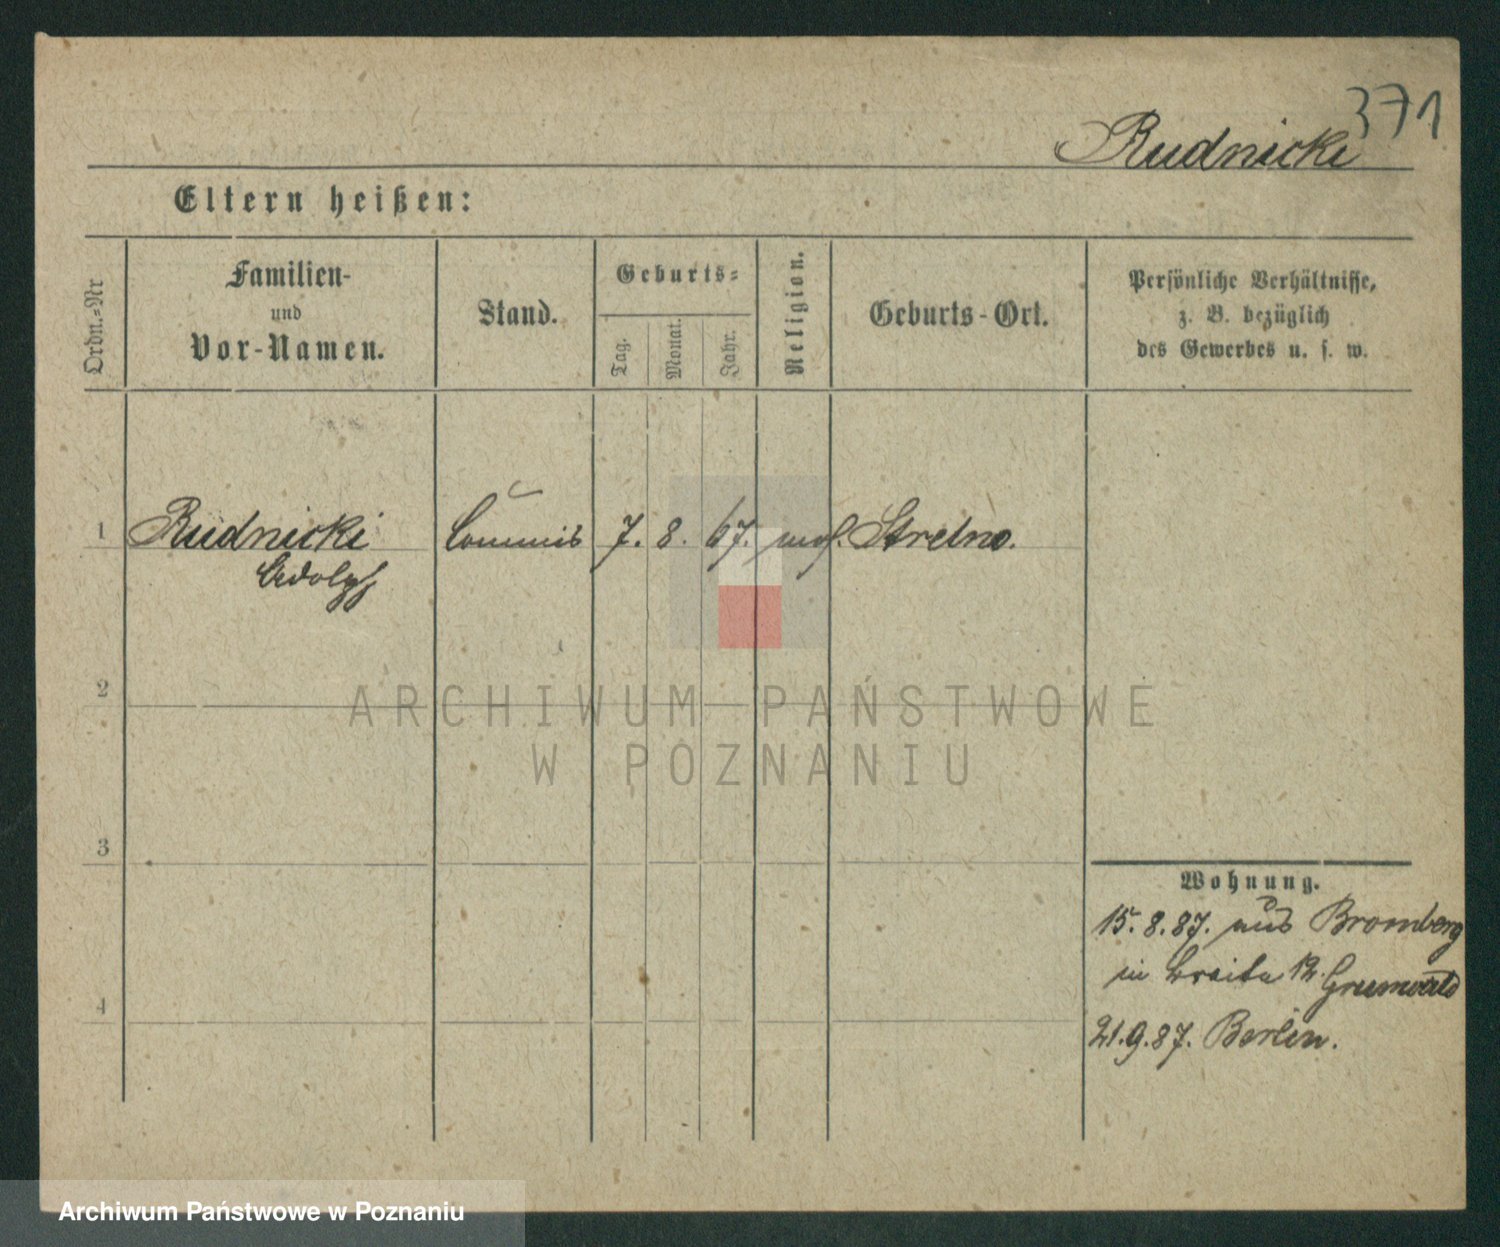 371
Rudnicki
Eltern heißen:
Ordn.=Nr
Familien-
und
Vor-Namen.
Stand.
Geburts=
Tag.
Monat.
Jahr.
Religion.
Geburts-Ort.
Persönliche Verhältnisse,
z. B. bezüglich
des Gewerbes u. s. w.
1 Rudnicki Commis 7. 8. 67. mos. Strelno.
Adolph
2
ARCHIWUM PAŃSTWOWE
W POZNANIU
3
Wohnung.
15.8.87. aus Bromberg
in Breite 12. Grunwald
4
21.9.87. Berlin.
Archiwum Państwowe w Poznaniu